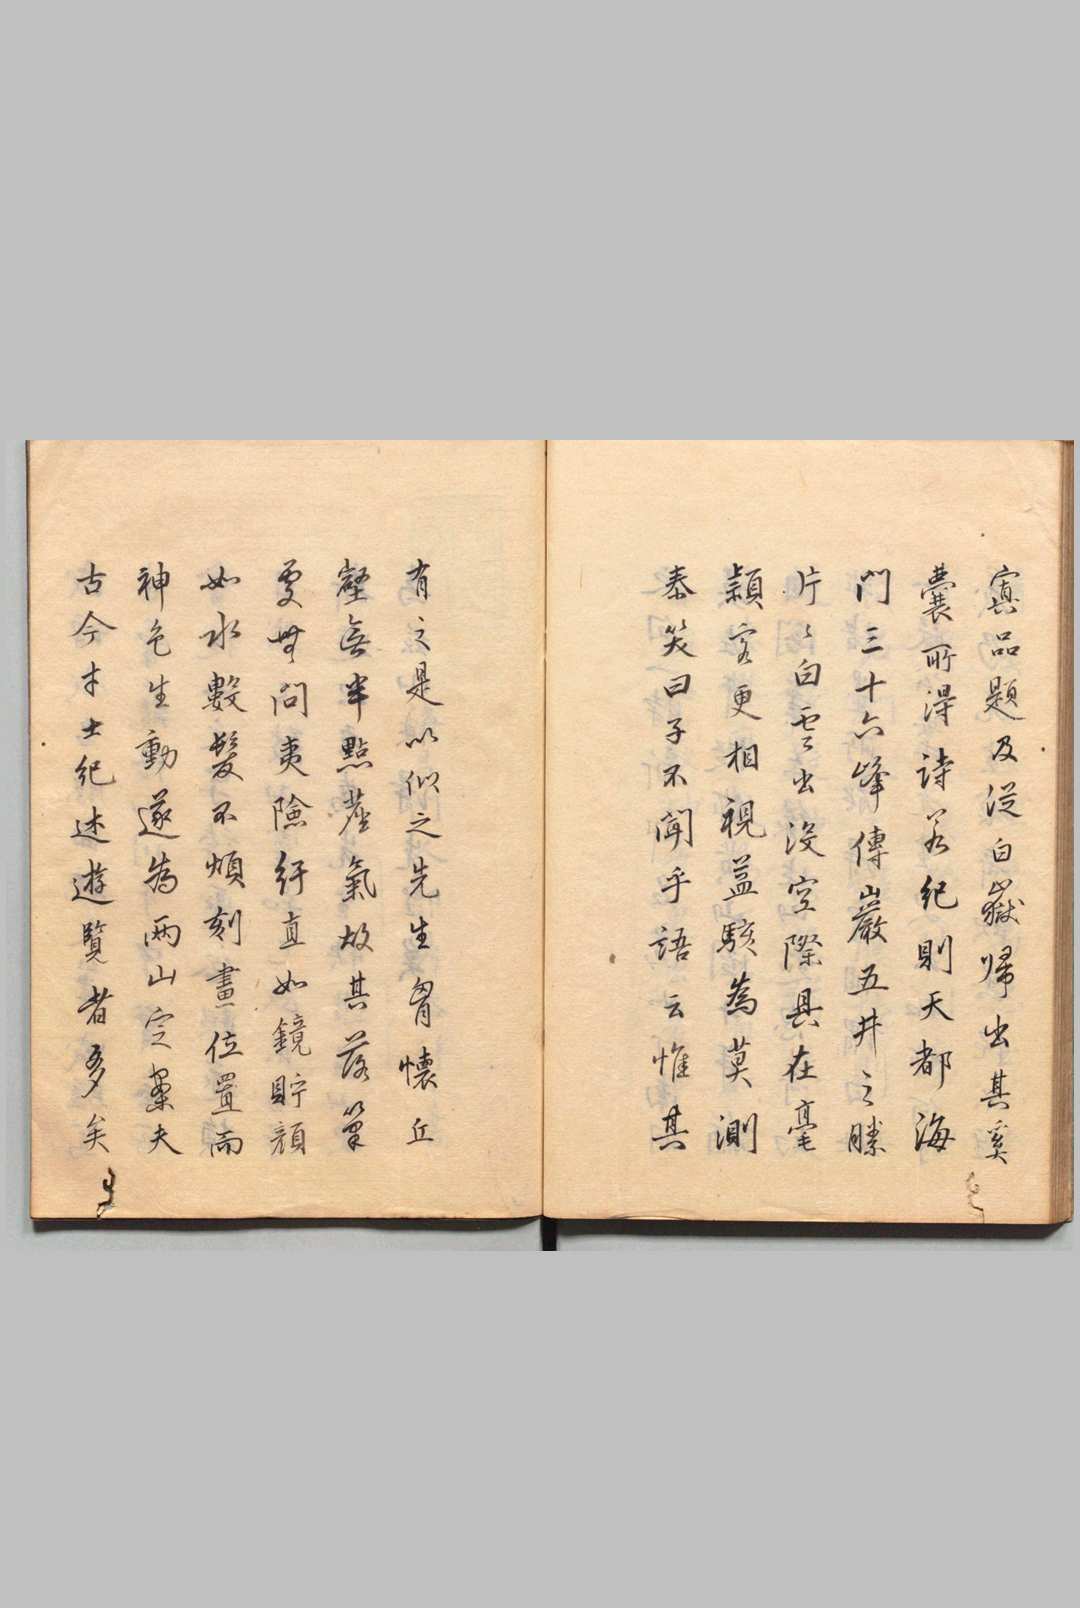 寘品題及從白嶽歸出其奚
囊所得詩若紀則天都海
門三十六峰傳巖五井之勝
片〻白雲出沒空際具在毫
穎客更相視益駭為莫測
泰笑曰子不聞乎語云惟其
有之是以似之先生胷懷丘
壑無半點塵氣故其落筆
處無問夷險紆直如鏡貯顏
如水數髮不煩刻畫位置而
神色生動遂為兩山定案夫
古今才士紀述遊覽者多矣